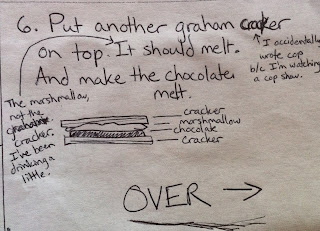 6. Put another graham cracker
on top. It should melt.
And make the chocolate
melt.
↑ I accidentally
wrote cop
b/c I'm watching
a cop show.
The marshmallow,
not the
graham
cracker.
I've been
drinking a
little.
cracker
marshmallow
chocolate
cracker
OVER →